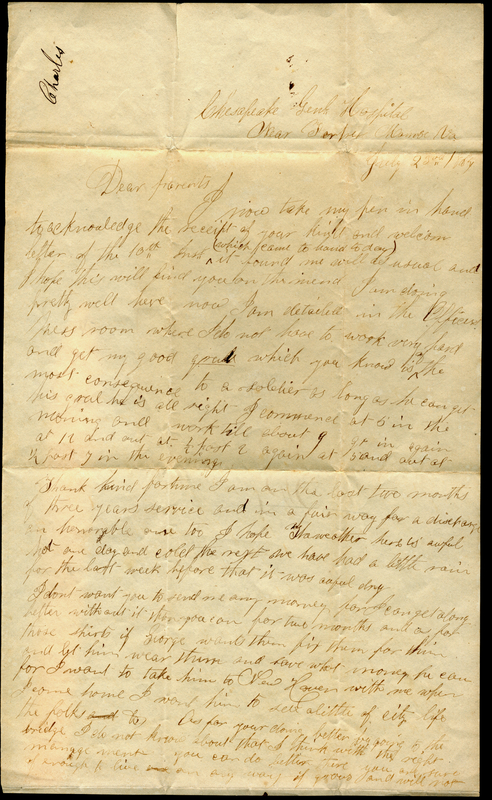 Charles
Chesapeake Genl Hospital
Near Fortress Monroe Va
July 2 /64
Dear parents I
now take my pen in hand
to acknowledge the receipt of your kind and welcom
letter of the 10th Inst (which came to hand to day)
it found me well as usual and
I hope this will find you on the mend I am doing
pretty well here now I am detailed in the Officers
Mess room where I do not have to work very hard
and get my good grub which you know is the
most consequence to a soldier as long as he can get
his grub he is all right I commence at 5 in the
morning and work till about 9 go in again
at 11 and out at ½ past 2 again at 5 and out at
½ past 7 in the evening
Thank kind fortune I am on the last two months
of three years service and in a fair way for a discharge
an honorable one too I hope Thaweather here is awful
hot one day and cold the next we have had a little rain
for the last week before that it was awful dry
I dont want you to send me any money for I can get along
better without it than you can for two months and as for
those shirts if George wants them fix them for him
and let him wear them and save what money he can
for I want to take him to New Haven with me when
I come home I want him to see a little of city life
the folks and to As for your doing better to go to
bridge I do not know about that I think with the right
management you can do better there you are sure
of enough to live on any way if grows and will not